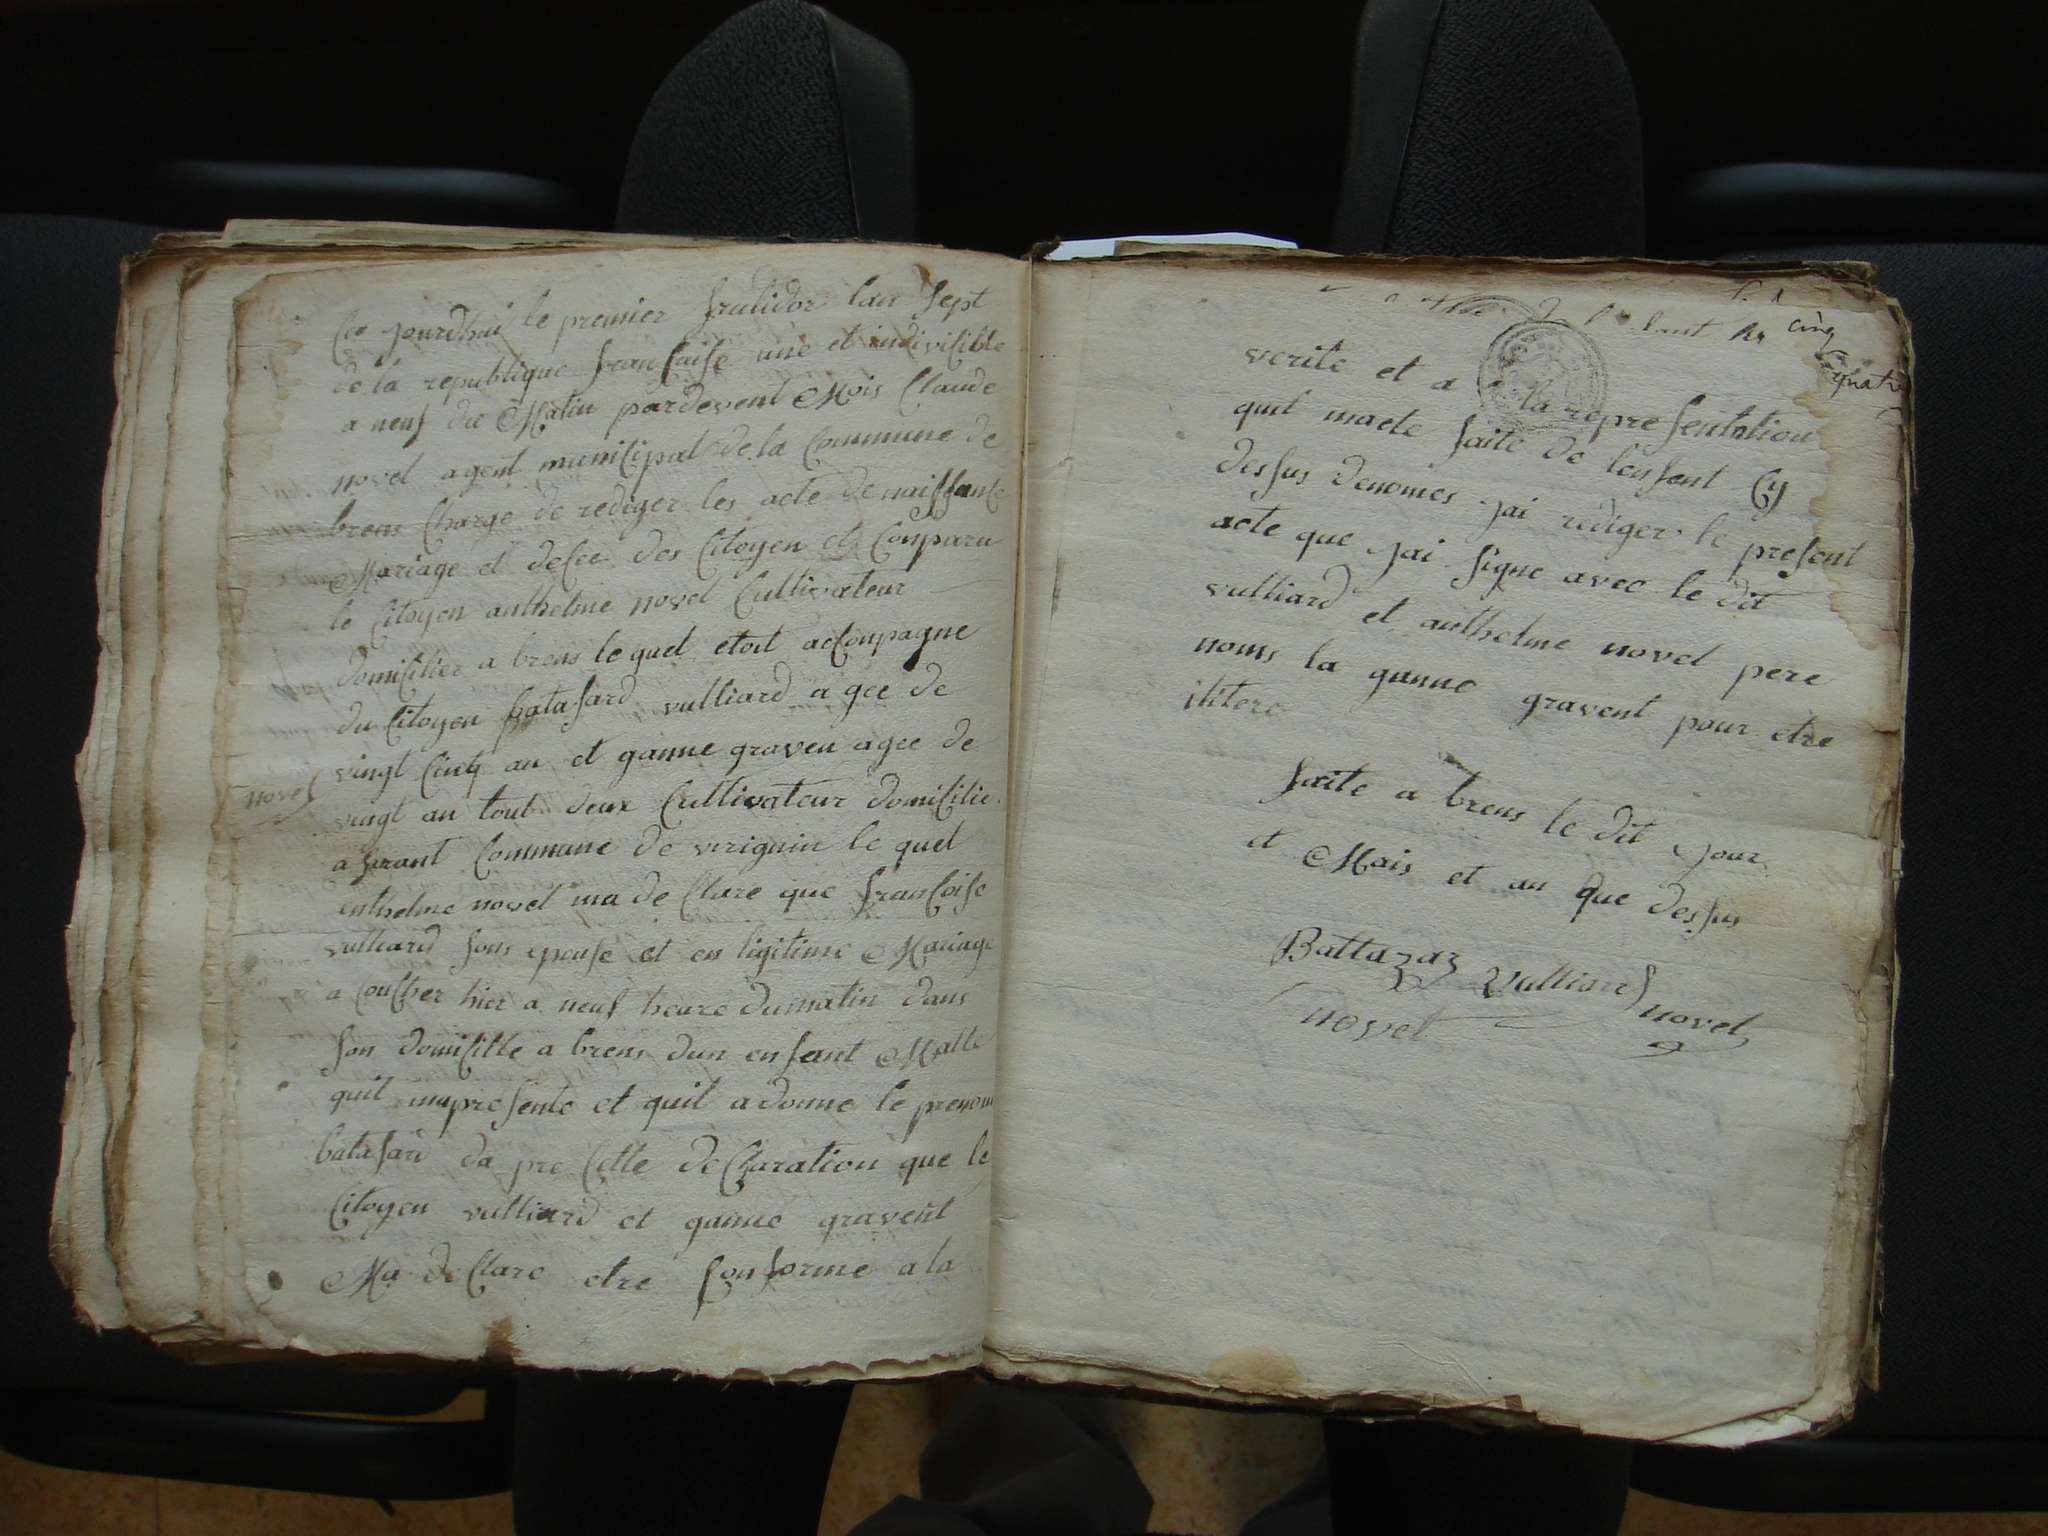 Ce jourdhui le premier frutidor lan sept
de la republique franCaise une et indivisible
a neuf du Matin pardevent Mois Claude
novel agent muniCipal de la Commune de
brens Charge de rediger les acte de naissanse
Mariage et deCee des Citoyen et Conparu
le Citoyen anthelme novel Cultivateur
domiCilier a brens le quel etoit acConpagne
du Citoyen batasard vulliard agee de
vingt Cinq an et ganne graven agee de
novel
vingt an tout deux Cultivateur domiCilie
a Commune de virignin le quel
enthelme novel ma de Clare que franCoise
vulliard sons epouse et en ligitime Mariage
a couCher hier a neuf heure dumatin dans
son domiCille a brens dun ensant Malle
quil mapresente et quil adonne le prenom
batasard da pre Cette deClaration que le
Citoyen vulliard et ganne gravent
Ma deClare etre Conforme ala
cinq
quatre
verite et a la representation
quil maete faite de lensent Cy
dessus denomes jai rediger le present
acte que jai signe avec le dit
vulliard et anthelme novel pere
nouns la ganne gravent pour etre
ilitere
faite a brens le dit jour
et Mais et an que dessus
Baltazaz vulliard
novel novel